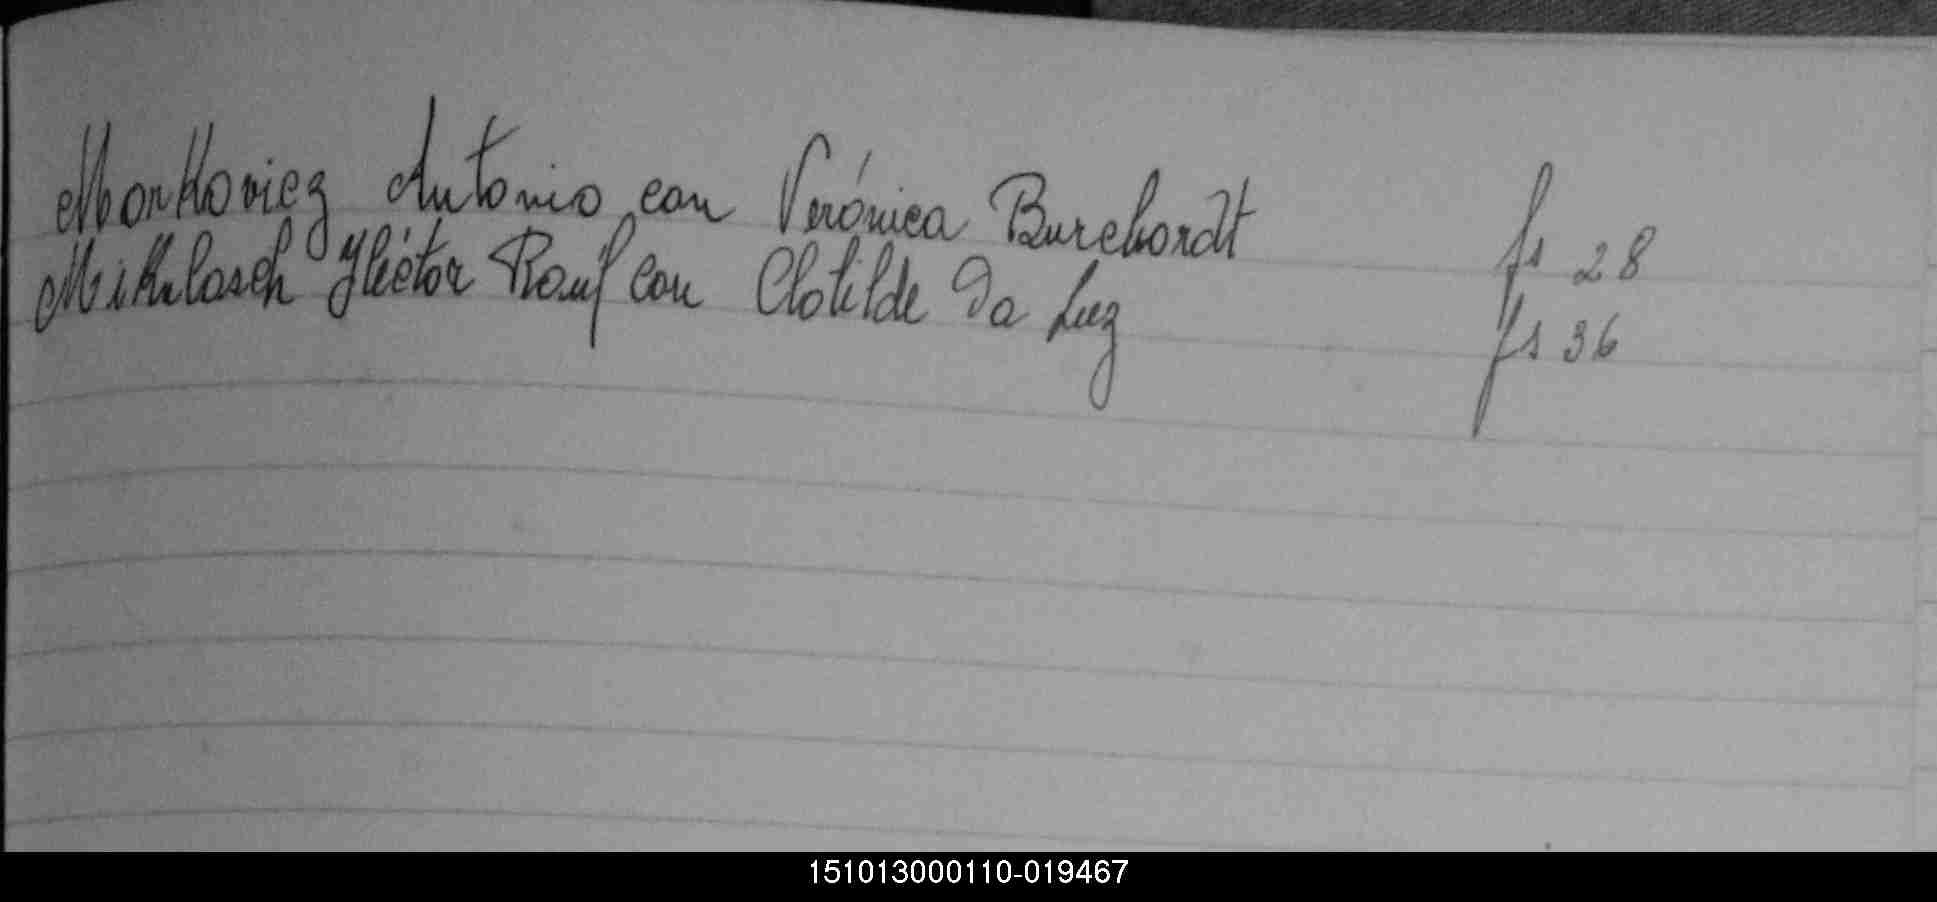 Markoviez Antonio con Verónica Burchardt fs 28
Mikulasch Héctor Rauf con Clotilde Da Luz fs 36
151013000110-019467